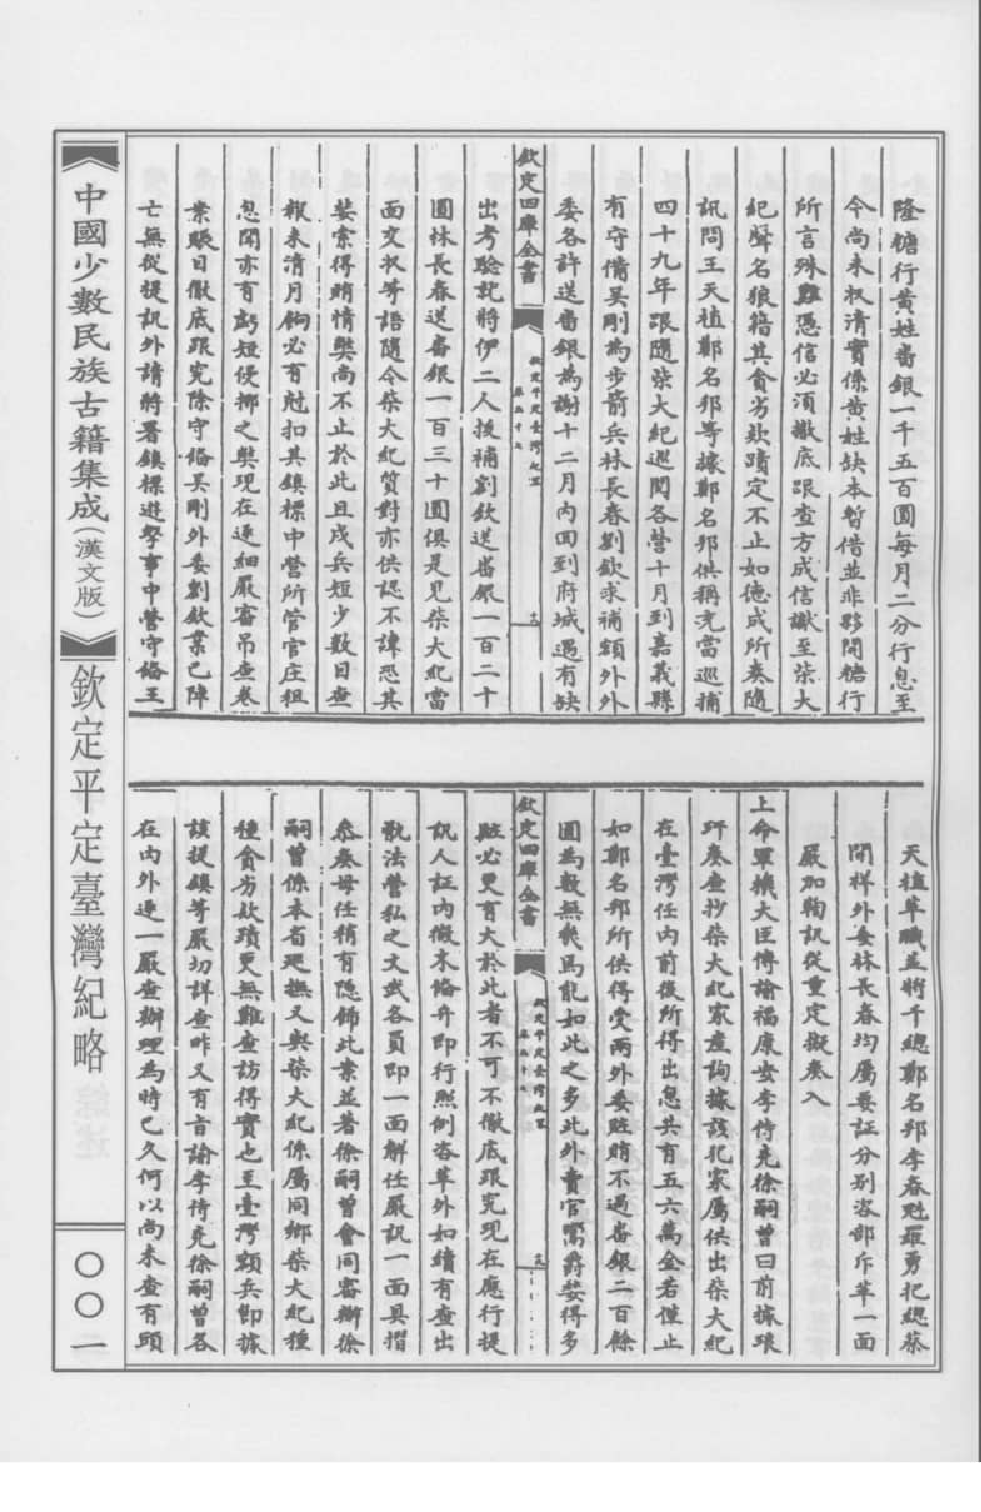 隆糖行黄姓畨銀一千五百圓每月二分行息至
今尚未收清實係黄姓缺本暫借並非夥開糖行
所言殊難憑信必須徹底跟查方成信讞至柴大
紀聲名狼籍其貪劣欵蹟定不止如徳成所奏隨
訊問王天植鄭名邦等據鄭名邦供稱充當巡捕
四十九年跟隨柴大紀巡閲各營十月到嘉義縣
有守備吴剛為步箭兵林長春劉欽求補額外外
委各許送畨銀為謝十二月内回到府城遇有缺
欽定四庫全書
欽定平定臺灣紀畧
卷五十七
十六
出考驗記將伊二人拔補劉欽送畨銀一百二十
圓林長春送畨銀一百三十圓俱是見柴大紀當
面交收等語隨令柴大紀質對亦供認不諱恐其
婪索得賄情弊尚不止於此且戍兵短少數目查
報未清月餉必有尅扣其鎮標中營所管官庄租
息聞亦有虧短侵挪之弊現在逐細嚴審吊查卷
案賬目徹底跟究除守俻吴剛外委劉欽業已陣
亡無從提訊外請將署鎮標遊擊事中營守俻王
天植革職並將千總鄭名邦李春甦羅勇把總蔡
開祥外委林長春均屬要証分别咨部斥革一面
嚴加鞫訊從重定擬奏入
上命軍機大臣傳諭福康安李侍堯徐嗣曾曰前據琅
玕奏查抄柴大紀家產詢據該犯家屬供出柴大紀
在臺灣任内前後所得出息共有五六萬金若僅止
如鄭名邦所供得受兩外委賍賄不過畨銀二百餘
圓為數無幾焉能如此之多此外賣官鬻爵婪得多
欽定四庫全書
欽定平定臺灣紀畧
卷五十七
賍必更有大於此者不可不徹底跟究現在應行提
訊人証内微末俻弁即行照例咨革外如續有查出
骫法營私之文武各員即一面解任嚴訊一面具摺
叅奏毋任稍有隐飾此案並著徐嗣曾會同審辦徐
嗣曾係本省廵撫又與柴大紀係屬同鄉柴大紀種
種貪劣欵蹟更無難查訪得實也至臺灣額兵即據
該提鎮等嚴切詳查昨又有㫖諭李侍堯徐嗣曾各
在内外逐一嚴查辦理為時已久何以尚未查有頭
中國少數民族古籍集成(漢文版)
欽定平定臺灣紀略
〇〇一